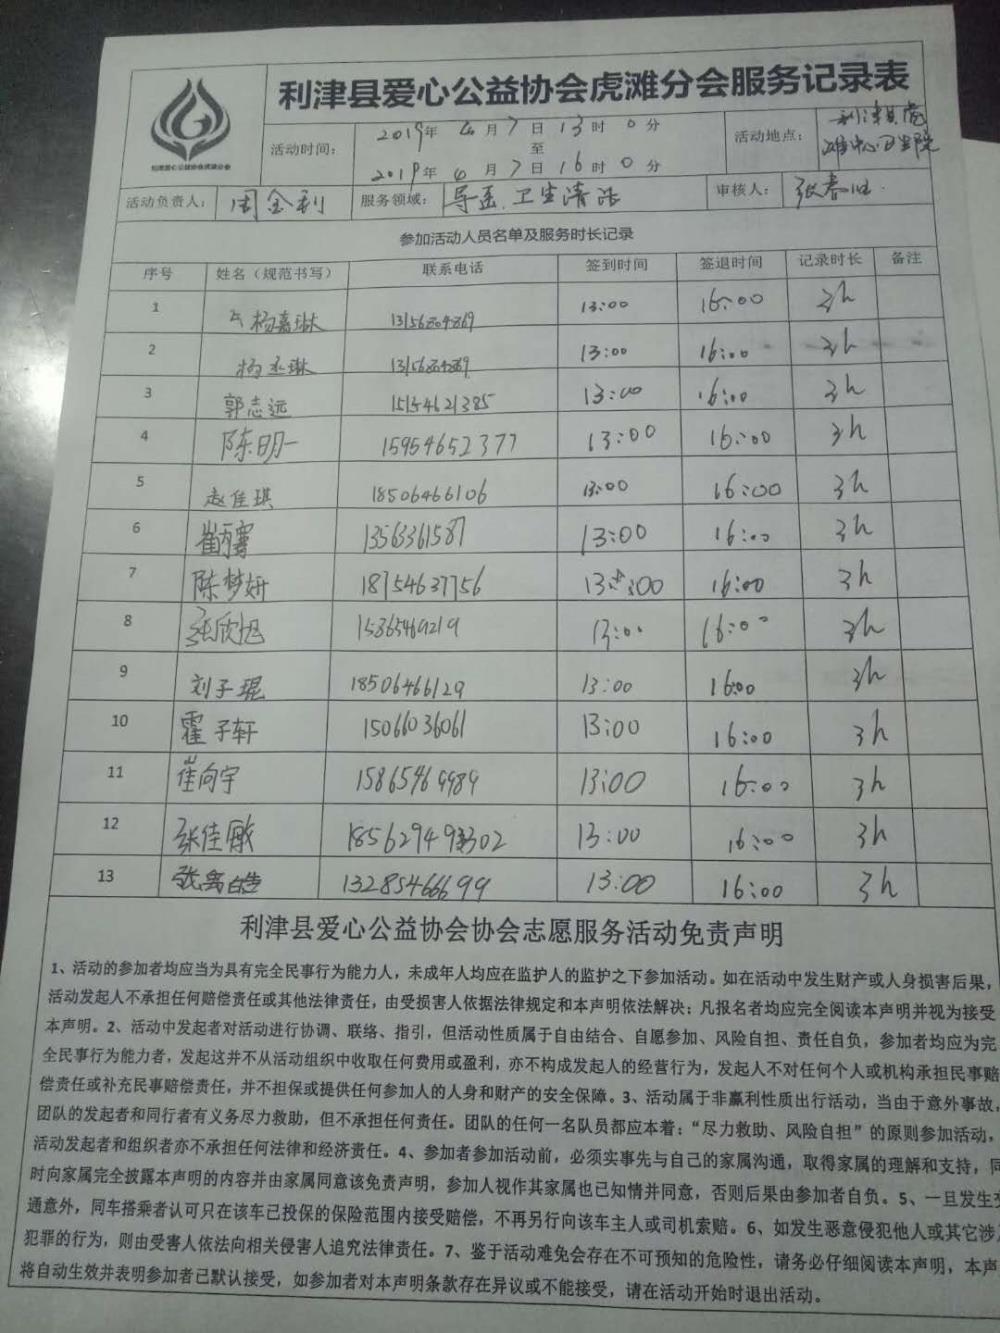 利津县爱心公益协会虎滩分会服务记录表
利津爱心公益协会虎滩分会
活动时间： 2019年 4月7日13时0分
至
2019年4月7日16时0分
活动地点： 利津县虎滩中心卫生院
活动负责人： 周金利 服务领域： 导医.卫生清洁 审核人： 张春旺
参加活动人员名单及服务时长记录
序号 姓名（规范书写） 联系电话 签到时间 签退时间 记录时长 备注
1 杨嘉琳 13156804869 13:00 16:00 3h
2 杨丞琳 13156804869 13:00 16:00 3h
3 郭志远 15154621385 13:00 16:00 3h
4 陈明一 15954652377 13:00 16:00 3h
5 赵佳琪 18506466106 13:00 16:00 3h
6 崔丙骞 13563361587 13:00 16:00 3h
7 陈梦妍 18754637756 13:00 16:00 3h
8 张欣旭 15865469219 13:00 16:00 3h
9 刘子琨 18506466129 13:00 16:00 3h
10 霍子轩 15066036061 13:00 16:00 3h
11 崔向宇 15865469989 13:00 16:00 3h
12 张佳敏 13:00 16:00 3h
13 张禹皓 13285466699 13:00 16:00 3h
利津县爱心公益协会协会志愿服务活动免责声明
1、活动的参加者均应当为具有完全民事行为能力人，未成年人均应在监护人的监护之下参加活动。如在活动中发生财产或人身损害后果，
活动发起人不承担任何赔偿责任或其他法律责任，由受损害人依据法律规定和本声明依法解决；凡报名者均应完全阅读本声明并视为接受
本声明。2、活动中发起者对活动进行协调、联络、指引，但活动性质属于自由结合、自愿参加、风险自担、责任自负，参加者均应为完
全民事行为能力者，发起这并不从活动组织中收取任何费用或盈利，亦不构成发起人的经营行为，发起人不对任何个人或机构承担民事赔
偿责任或补充民事赔偿责任，并不担保或提供任何参加人的人身和财产的安全保障。3、活动属于非赢利性质出行活动，当由于意外事故，
团队的发起者和同行者有义务尽力救助，但不承担任何责任。团队的任何一名队员都应本着：“尽力救助、风险自担”的原则参加活动，
活动发起者和组织者亦不承担任何法律和经济责任。4、参加者参加活动前，必须实事先与自己的家属沟通，取得家属的理解和支持，同
时向家属完全披露本声明的内容并由家属同意该免责声明，参加人视作其家属也已知情并同意，否则后果由参加者自负。5、一旦发生交
通意外，同车搭乘者认可只在该车已投保的保险范围内接受赔偿，不再另行向该车主人或司机索赔。6、如发生恶意侵犯他人或其它涉及
犯罪的行为，则由受害人依法向相关侵害人追究法律责任。7、鉴于活动难免会存在不可预知的危险性，请务必仔细阅读本声明，本声
将自动生效并表明参加者已默认接受，如参加者对本声明条款存在异议或不能接受，请在活动开始时退出活动。